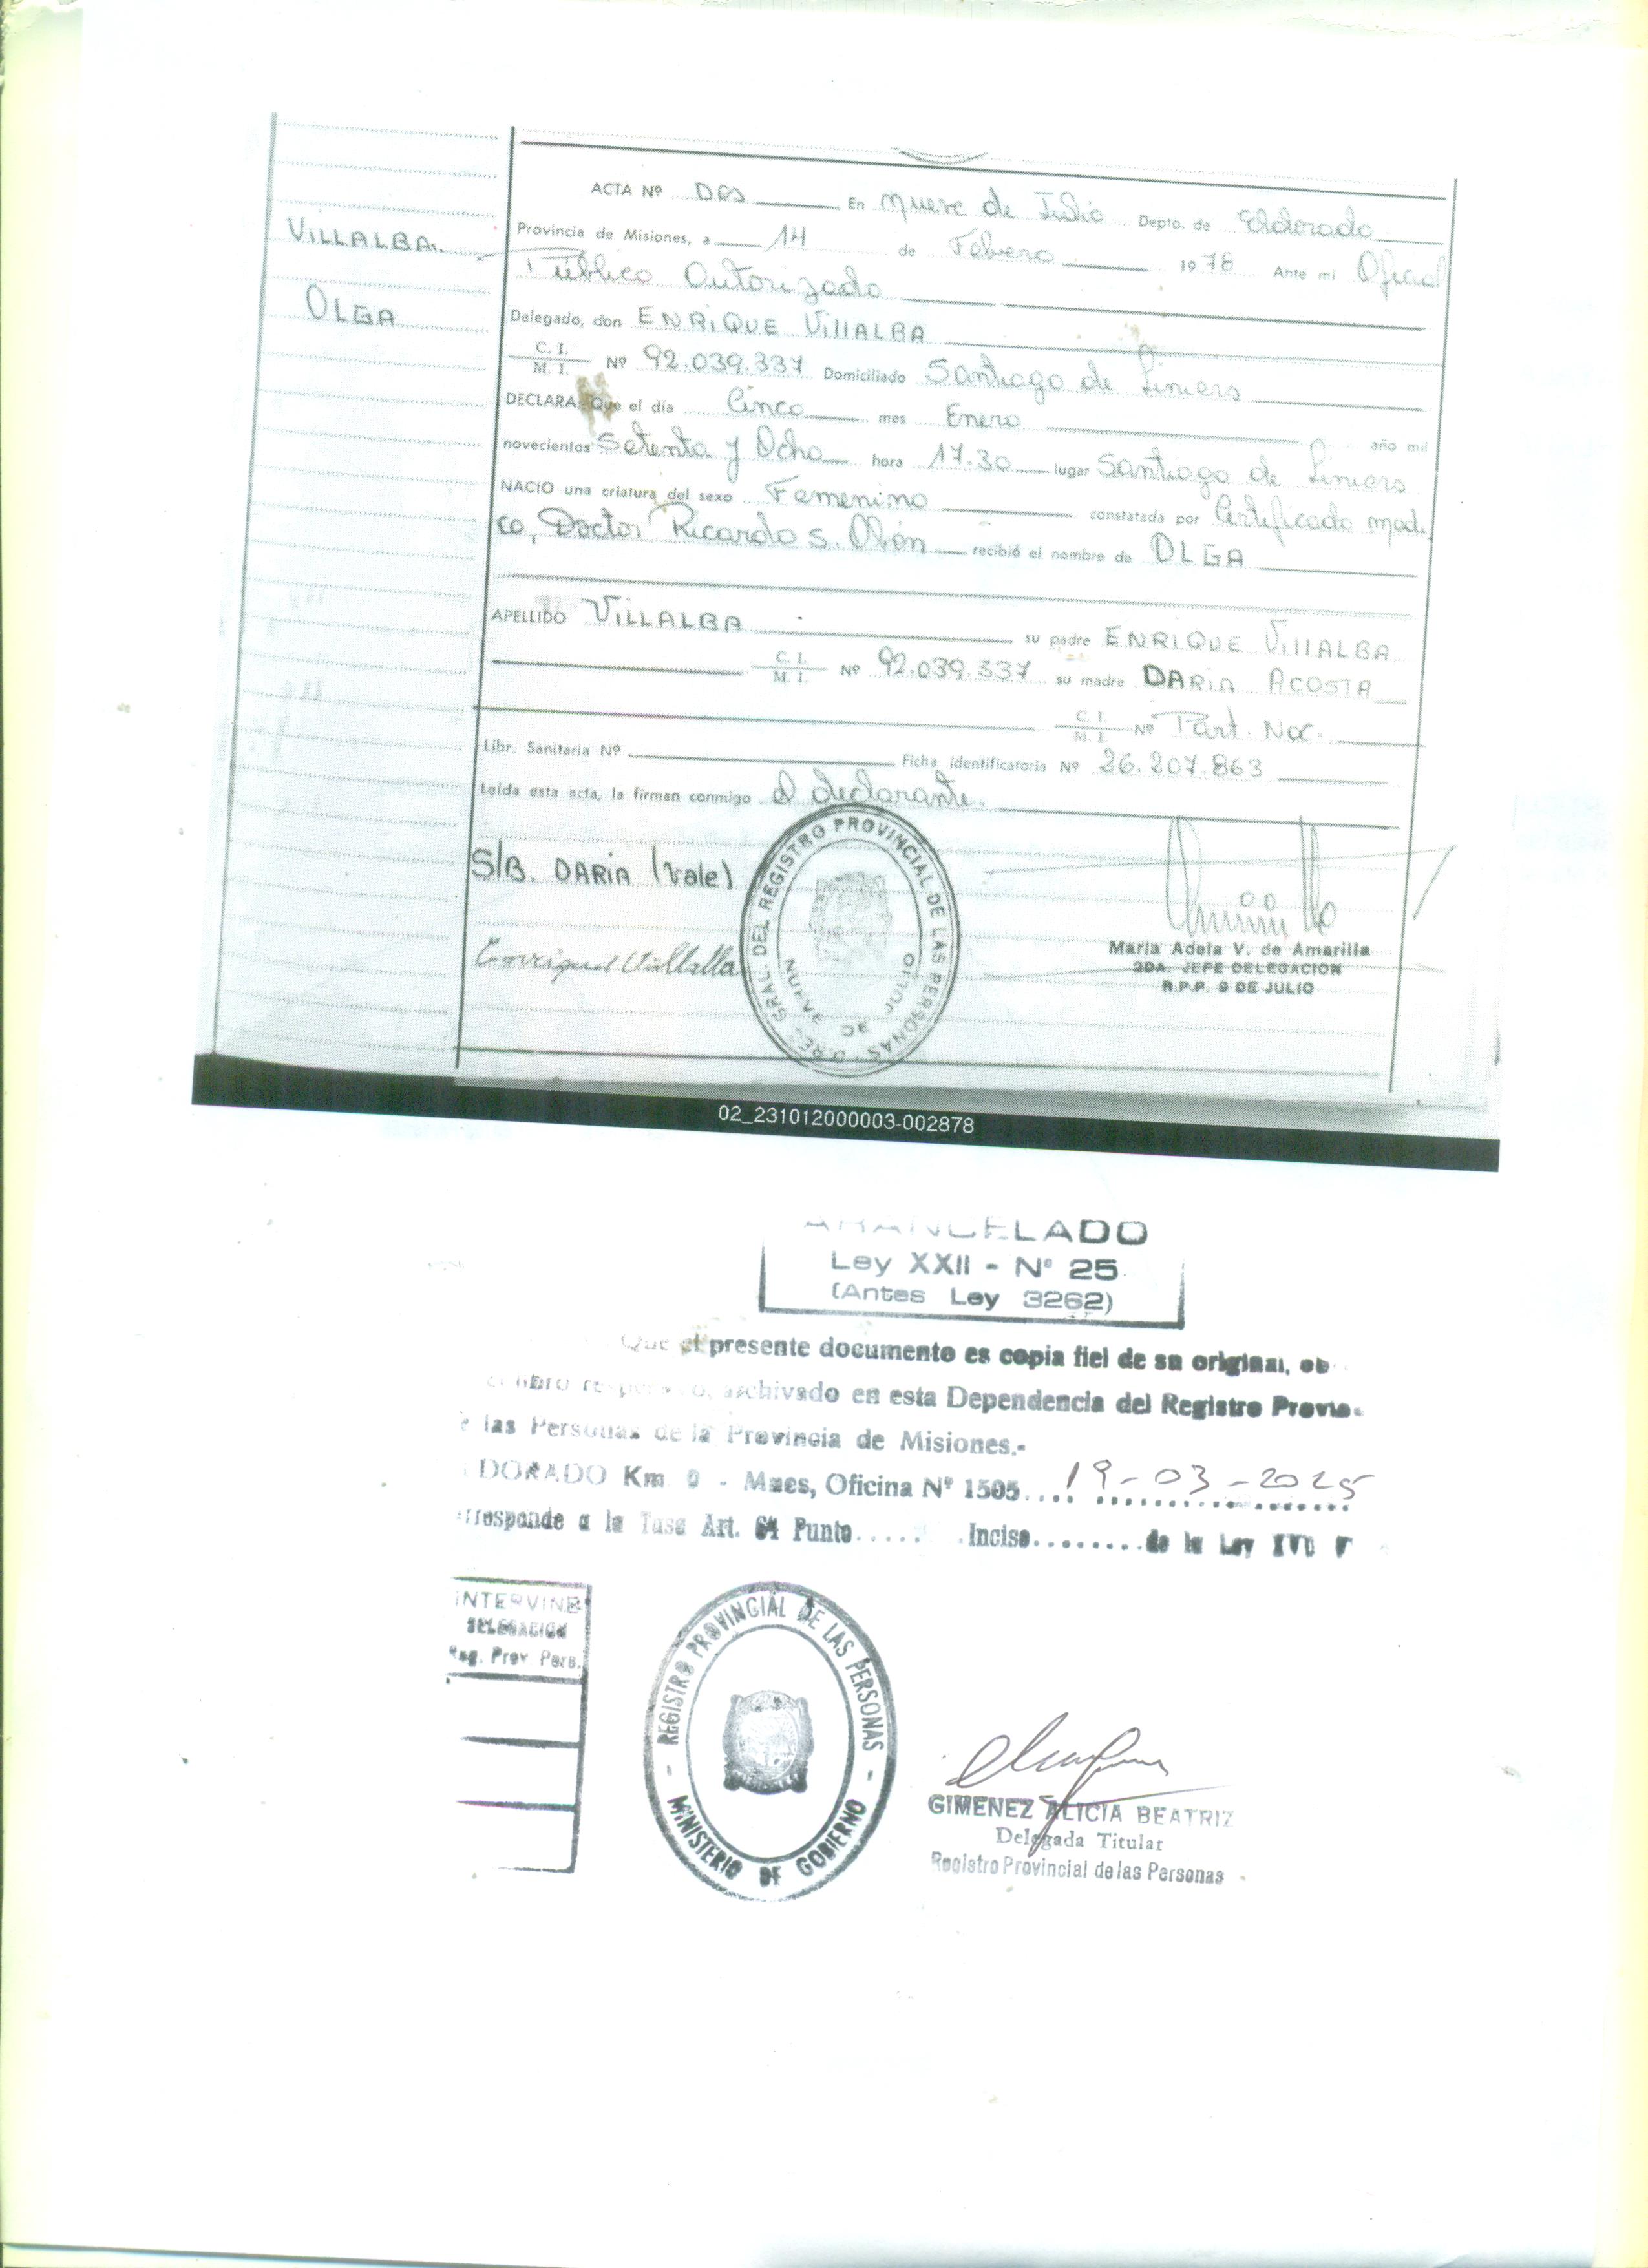 VILLALBA.
OLGA
ACTA Nº Dos En Nueve de Julio Depto. de Eldorado
Provincia de Misiones, a 14 de Febrero 1978 Ante mi Oficial
Público Autorizado
Delegado, don ENRIQUE VillALBA
C. I. / M. I. Nº 92.039.337 Domiciliado Santiago de Liniers
DECLARA: Que el día Cinco mes Enero año mil
novecientos Setenta y Ocho hora 17.30 lugar Santiago de Liniers
NACIO una criatura del sexo Femenino constatada por Certificado medi
co, Doctor Ricardo S. Obón recibió el nombre de OLGA
APELLIDO VILLALBA su padre ENRIQUE VillALBA
C. I. / M. I. Nº 92.039.337 su madre DARIA ACOSTA
C. I. / M. I. Nº Part. Nac.
Libr. Sanitaria Nº Ficha identificatoria Nº 26.207.863
Leída esta acta, la firman conmigo el declarante.
S/B. DARIA (Vale)
Enrique Villalba
DEL REGISTRO PROVINCIAL DE LAS PERSONAS
NUEVE DE JULIO
María Adela V. de Amarilla
2DA. JEFE DELEGACION
R.P.P. 9 DE JULIO
02_231012000003-002878
ARANCELADO
Ley XXII - Nº 25
(Antes Ley 3262)
Que el presente documento es copia fiel de su original,
archivado en esta Dependencia del Registro
las Personas de la Provincia de Misiones.-
DORADO Km 9 - Mnes, Oficina Nº 1505.... 19-03-2025
a la Tasa Art. 64 Punto..... .Inciso.........de la Ley
INTERVINE
DELEGACION
Reg. Prov Pers.
REGISTRO PROVINCIAL DE LAS PERSONAS
MINISTERIO DE GOBIERNO
GIMENEZ ALICIA BEATRIZ
Delegada Titular
Registro Provincial de las Personas